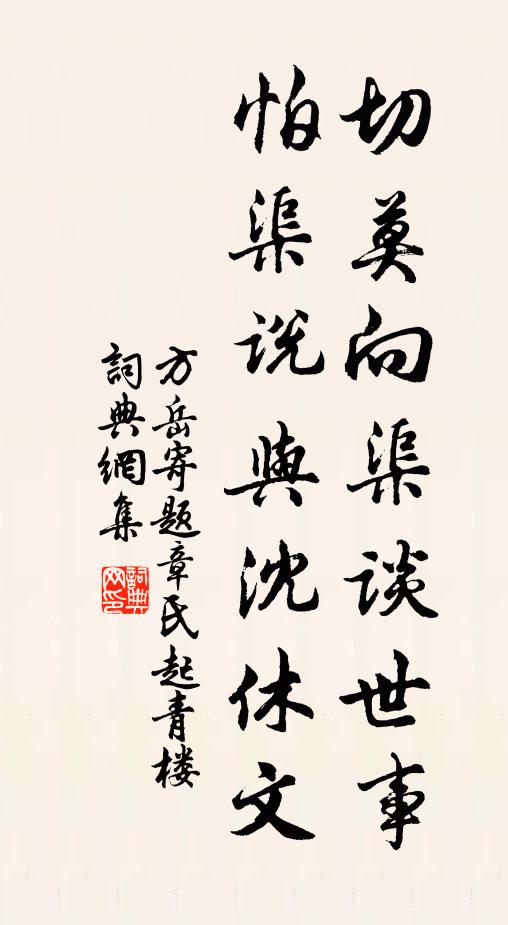 切莫向渠谈世事
怕渠说與沈休文
方岳寄题章氏起青楼
詞典網集
詞典网印